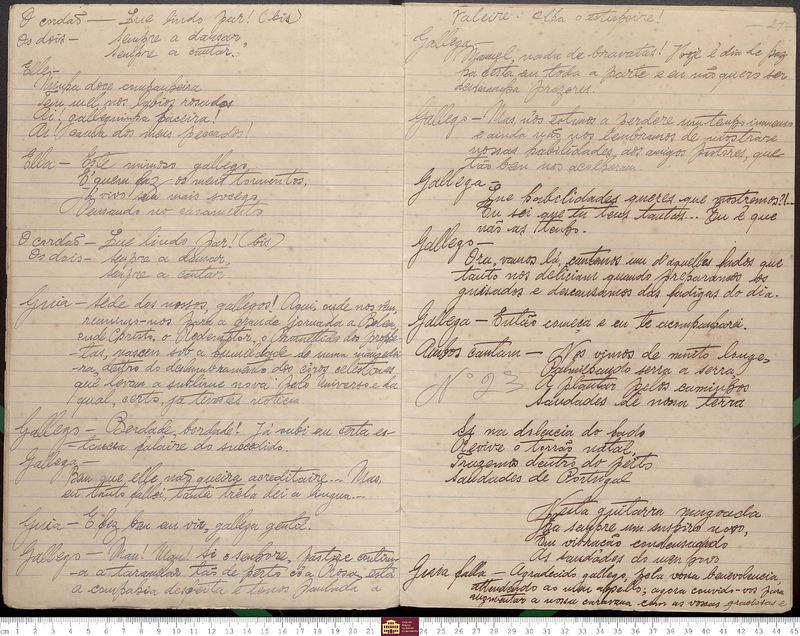 O cordão — Que lindo par! (bis)
Os dois — Sempre a dansar,
Sempre a cantar.
Elle —
Minha doce companheira
Tem mel nos labios rosados
Ai, galleguinha faceira!
Ai causa dos meus peccados!
Ella — Este mimoso gallego,
E' quem faz os meus tormentos,
Já vivo sem mais socego
Pensando no casamento
O cordão — Que lindo par! (bis)
Os dois — sempre a dansar,
sempre a cantar.
Guia — Sêde dos nossos, gallegos! Aqui, onde nos vêm,
reunimo-nos para a grande jornada a Belém
onde Christo, o Redemptor, o Promettido dos prophe-
tas, nasceu sob a humildade de uma mangedou-
ra, dentro do deslumbramento dos ciros celestiaes
que levam a sublime nova pelo Universo e da
qual, certo, já tivestes noticia
Gallego — Berdade, berdade! Já oubi eu certa es-
tancia falaire do succedido.
Gallega —
Ban que elle não queira acreditaire... Mas,
eu tanto fallei, tanta tréla dei a lingua...
Guia — E fez ban eu vir, gallega gentil.
Gallego — Mau! Mau! Si o senhore, pastore continu-
a a taramelar tão de perto cô a Rosa, está
a companhia desfeita e temos pantada a
valeire. Olha o estupoire!
24
Gallega —
Manuel, nada de bravatas! Hoje é dia de paz
na certa em toda a parte e eu não quero ser
desmancha prazeres.
Gallego — Mas, nós estamos a perdere um tempo immenso
e ainda não nos lembramos de mostrare
nossas habilidades aos amigos pastores, que
tão ben nos acolheram.
Gallega —
Que habilidades queres que mostremos?!...
Eu sei que tu tens tantas... Eu é que
não as tenho.
Gallego —
Ora, vamos lá, cantemos um d'aquelles fados que
tanto nos deliciam quando preparamos os
guisados e descansamos das fadigas do dia.
Gallega — Então comeca e eu te acompanharei.
Ambos cantam — Nós vimos de muito longe,
Palmilhando serra a serra,
Nº 23 A plantar pelos caminhos
Saudades de nossa terra
Es na dolencia do fado
Revive o torrão natal,
Trazemo dentro do peito
Saudades de Portugal
Nesta guitarra magoada
Ha sempre um suspiro novo,
Em vibração condensando
As saudades do meu povo
Guia falla — Agradecido gallego, pela vossa benevolencia,
attendendo ao meu appello; agora convido-vos para
augmentar a nossa caravana com as vossas graciosas e